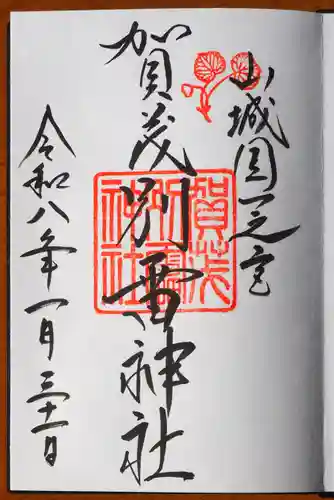 山城国一之宮
賀茂別雷神社
令和八年一月三十一日
賀茂
別雷
神社